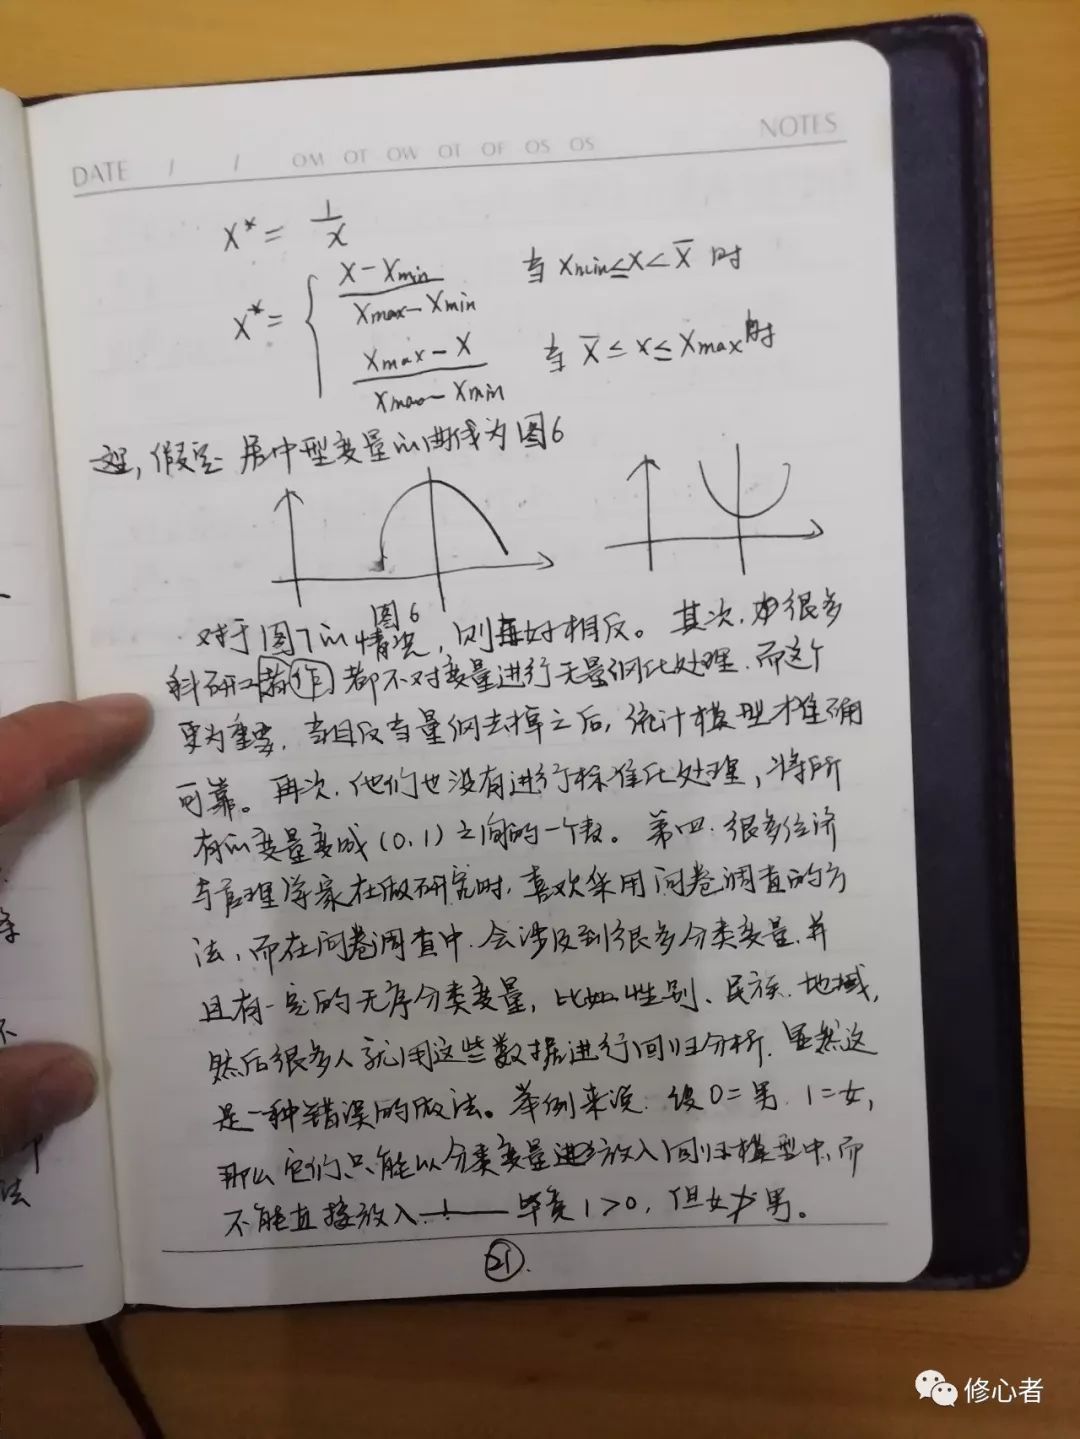 DATE / / OM OT OW OT OF OS OS NOTES
X* = 1/X
X* = { (X-Xmin)/(Xmax-Xmin) 当 Xmin≤X<X̄ 时
(Xmax-X)/(Xmax-Xmin) 当 X̄≤X≤Xmax时
这里,假定 居中型变量的曲线为图6
图6
对于图7的情况,则再好相反。其次,很多
科研工作 都不对变量进行无量纲化处理.而这个
更为重要,当且反当量纲去掉之后,统计模型才准确
可靠。再次.他们也没有进行标准化处理,将所
有的变量变成(0,1)之间的一个数。第四.很多经济
与管理学家在做研究时,喜欢采用问卷调查的方
法,而在问卷调查中.会涉及到很多分类变量.并
且有一定的无序分类变量,比如性别、民族.地域,
然后很多人就用这些数据进行回归分析.显然这
是一种错误的做法。举例来说:设0=男.1=女,
那么它们只能以分类变量进行放入回归模型中,而
不能直接放入.—— 毕竟1>0,但女≯男。
21.
修心者